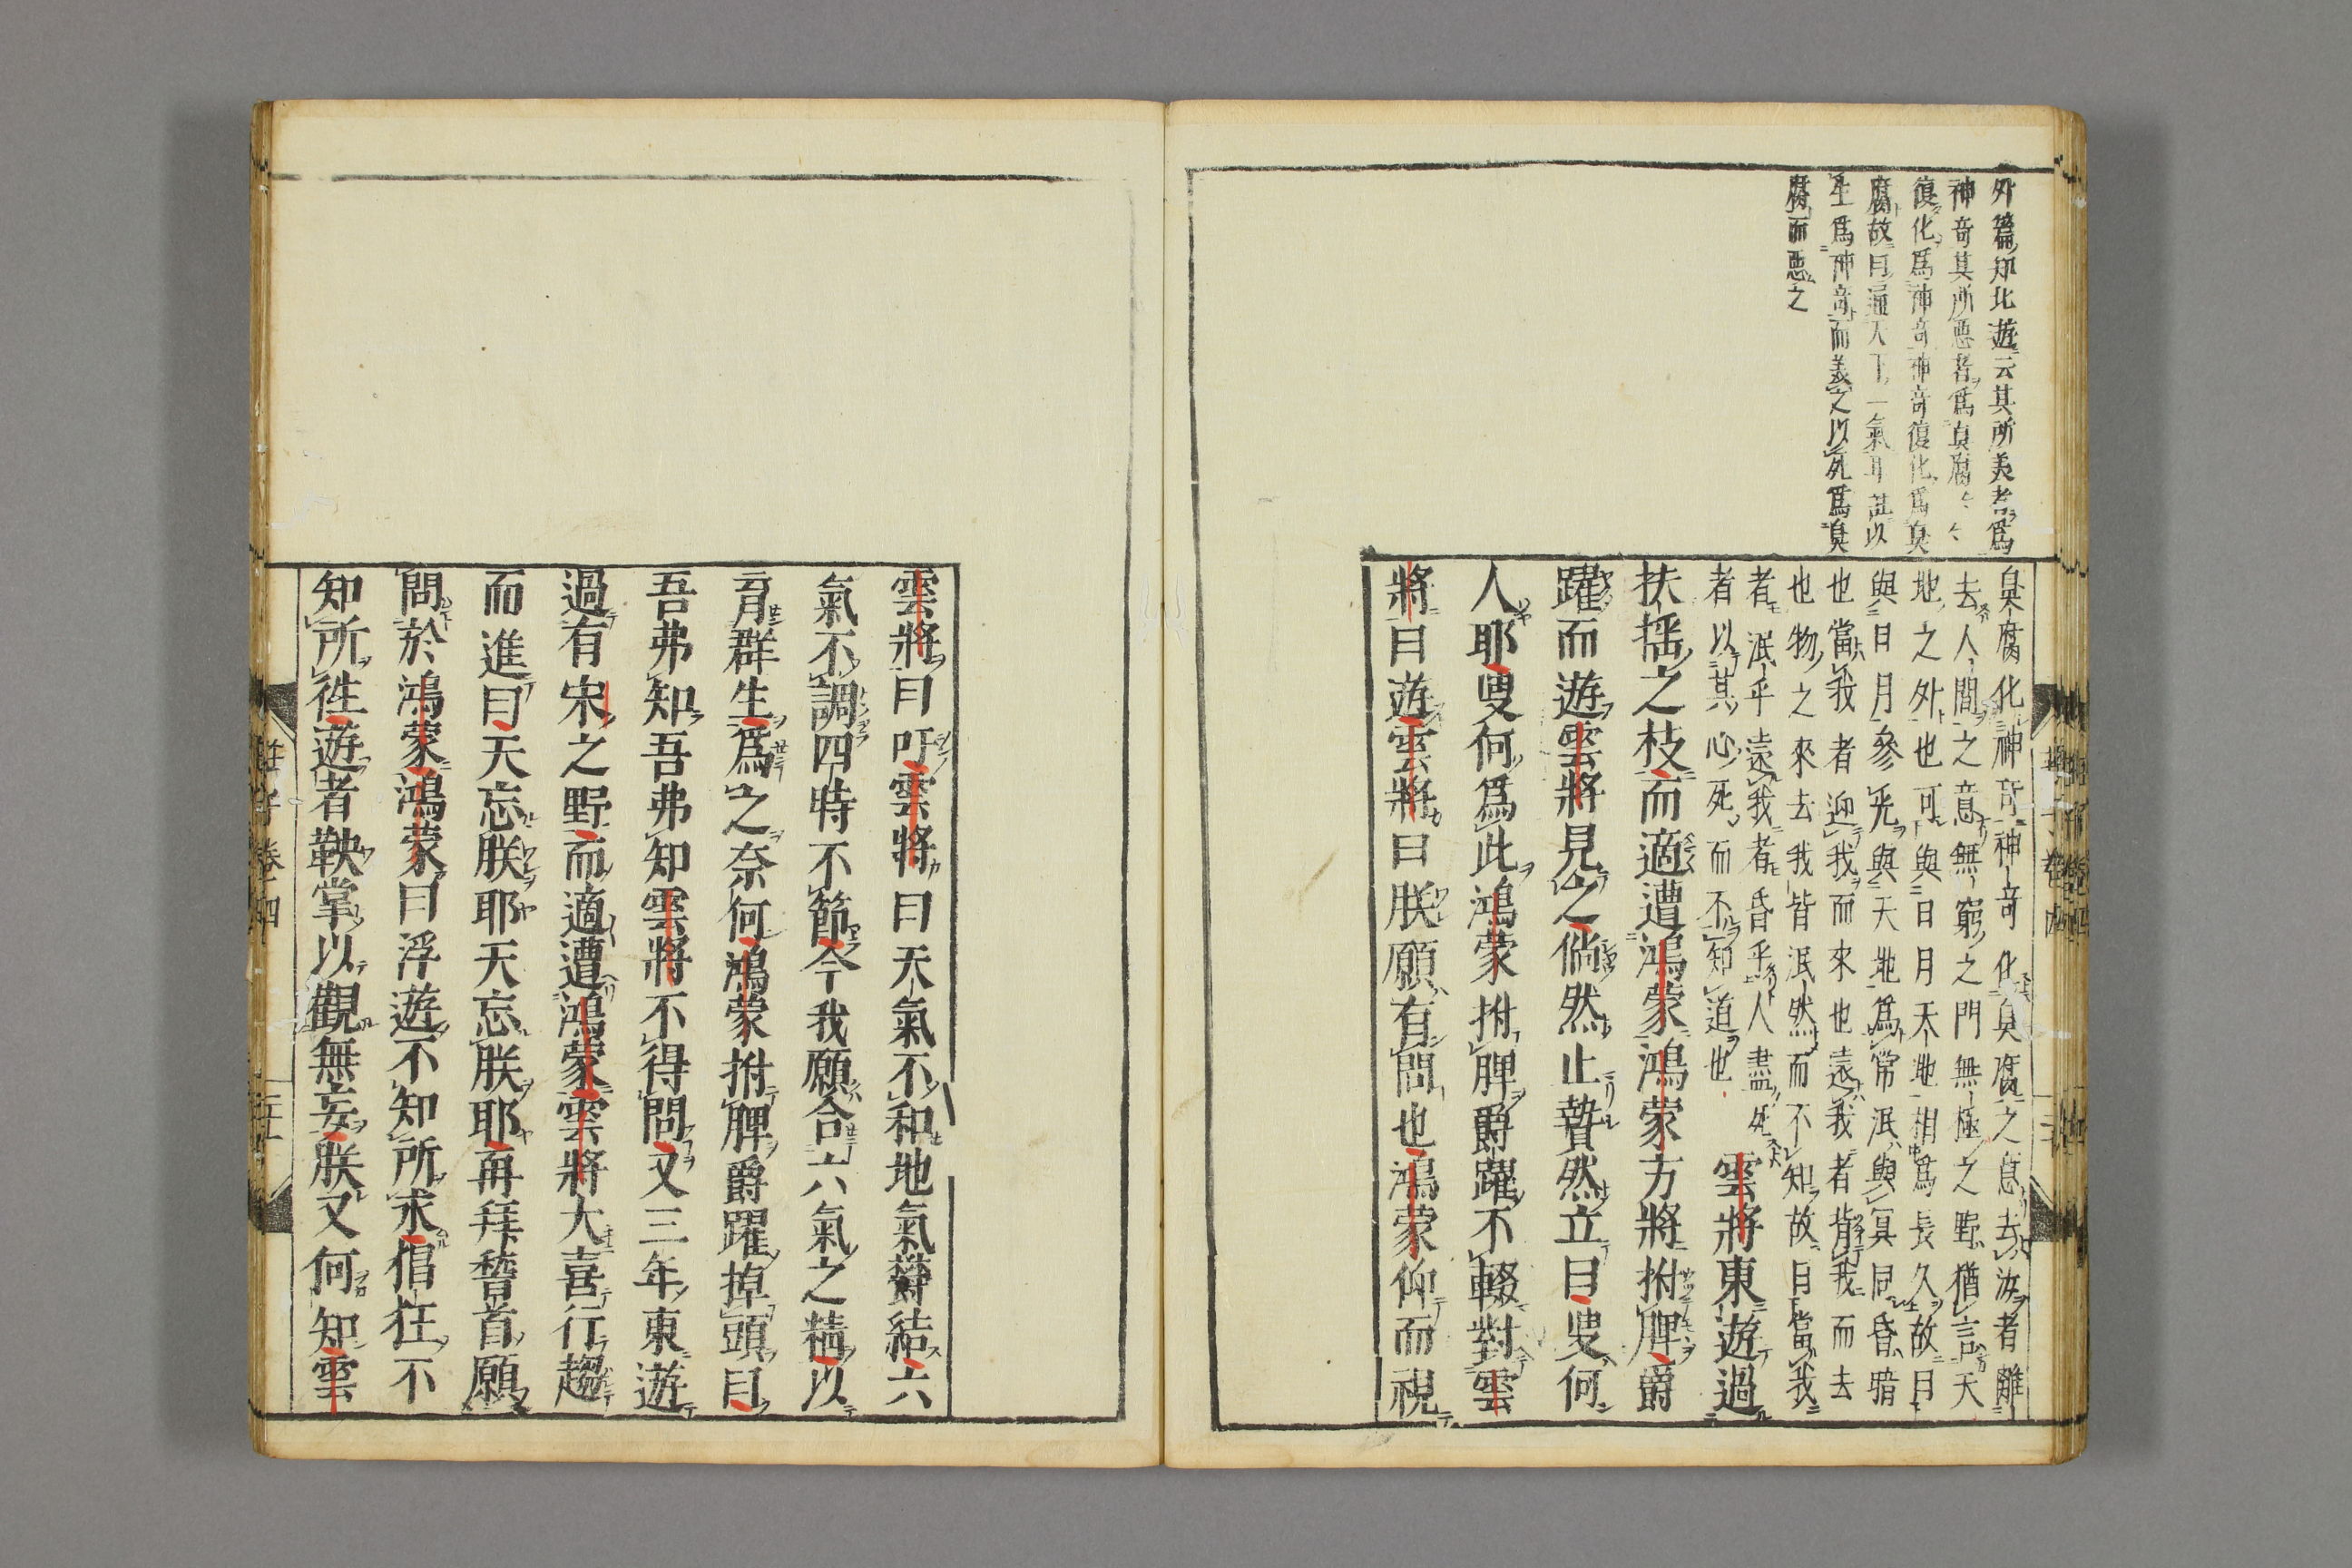 外篇知北遊云其所美者爲
神奇其所惡者爲臭腐々々
復化爲神奇神奇復化爲臭
腐故曰通天下一氣耳註以
生爲神奇而美之以死爲臭
腐而惡之
臭腐化神奇神奇化臭腐之意去汝者離
去人間之意無窮之門無極之野猶言天
地之外也可與日月天地相爲長久故曰
與日月參光與天地爲常泯與冥同昏暗
也當我者迎我而來也遠我者背我而去
也物之來去我皆泯然而不知故曰當我
者泯乎遠我者昏乎人盡死
者以其心死而不知道也 雲將東遊過
扶搖之枝而適遭鴻蒙鴻蒙方將拊脾爵
躍而遊雲將見之倘然止贄然立曰叟何
人耶叟何爲此鴻蒙拊脾爵躍不輟對雲
將曰遊雲將曰朕願有問也鴻蒙仰而視
雲將曰吁雲將曰天氣不和地氣欝結六
氣不調四時不節今我願合六氣之精以
育群生爲之奈何鴻蒙拊脾爵躍掉頭曰
吾弗知吾弗知雲將不得問又三年東遊
過有宋之野而適遭鴻蒙雲將大喜行趨
而進曰天忘朕耶天忘朕耶再拜稽首願
聞於鴻蒙鴻蒙曰浮遊不知所求猖狂不
知所徃遊者鞅掌以觀無妄朕又何知雲
莊子卷四